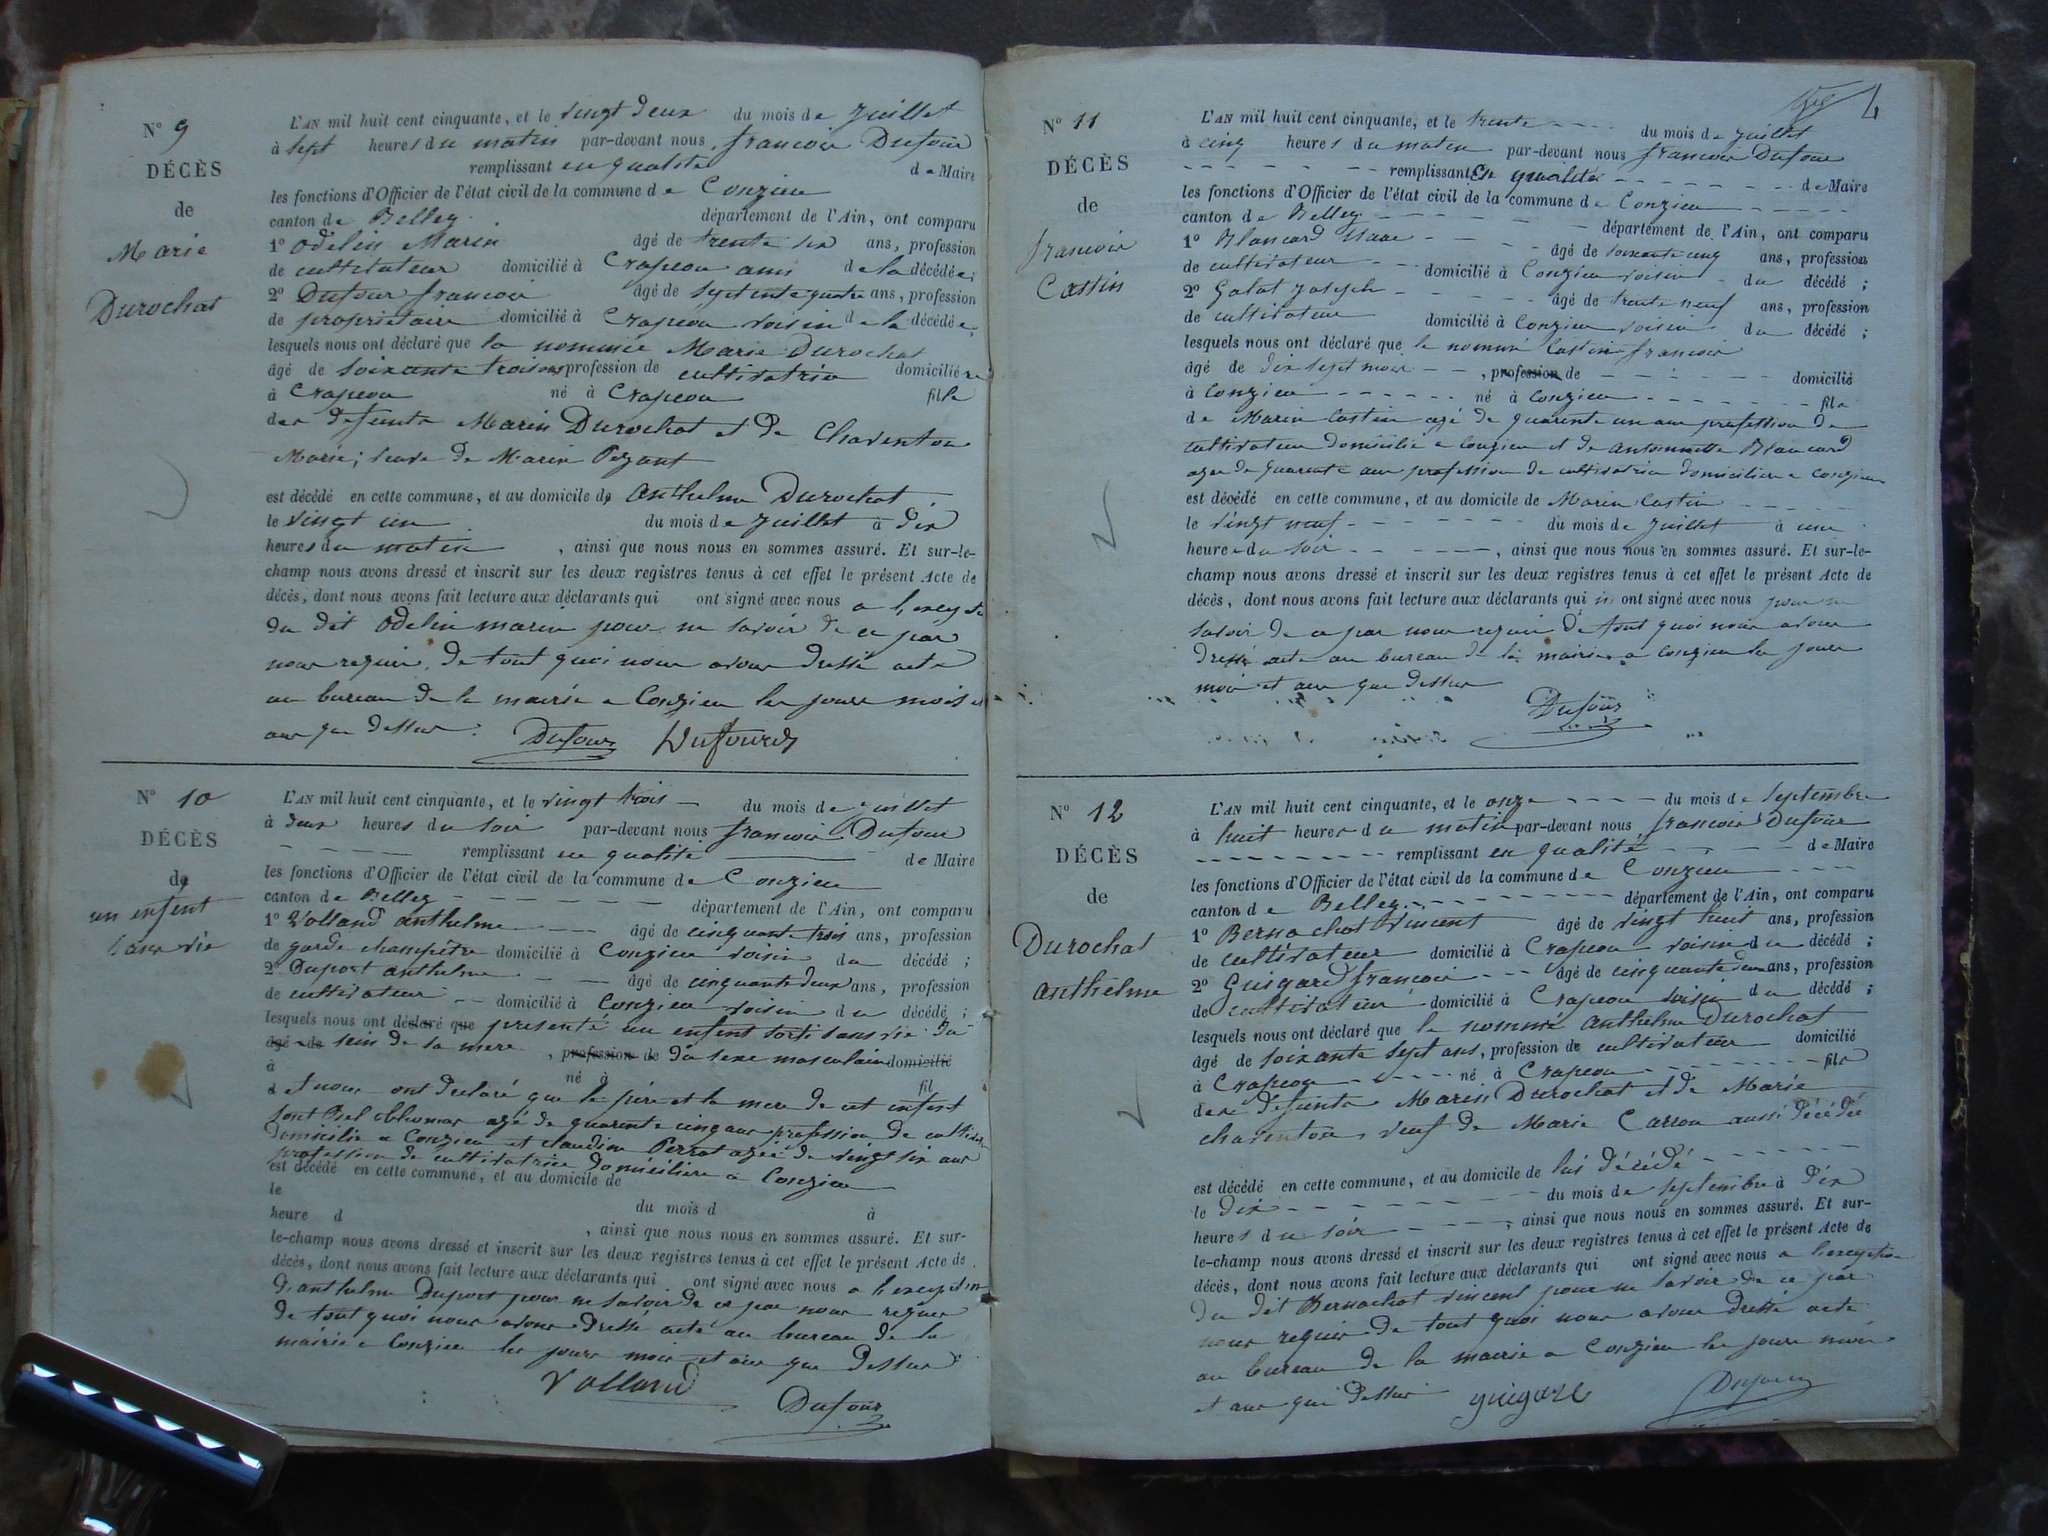 N° 9
DÉCÈS
de
Marie
Durochat
L'AN mil huit cent cinquante, et le vingt deux du mois de juillet
à sept heures du matin par-devant nous francois Dufour
remplissant en qualité de Maire
les fonctions d'Officier de l'état civil de la commune de Conzieu
canton de Belley département de l'Ain, ont comparu
1° Odelin Marin âgé de trente six ans, profession
de cultivateur domicilié à Crapeou ami de la décédée;
2° Dufour francois âgé de septente quatre ans, profession
de propriétaire domicilié à Crapeou voisin de la décédée,
lesquels nous ont déclaré que la nommée Marie Durochat
âgé de soixante trois ans profession de cultivatrice domiciliée
à Crapeou né à Crapeou fille
des defunts Marin Durochat et de Charenton
Marie; veuve de Marin Pezant
est décédé en cette commune, et au domicile de Anthelme Durochat
le vingt un du mois de juillet à dix
heures du matin, ainsi que nous nous en sommes assuré. Et sur-le-
champ nous avons dressé et inscrit sur les deux registres tenus à cet effet le présent Acte de
décès, dont nous avons fait lecture aux déclarants qui ont signé avec nous a l'exceptn
du dit Odelin marin pour ne savoir de ce par
nous requis. de tout quoi nous avons dressé acte
au bureau de la mairie a Conzieu les jours mois et
ans que dessus. Dufour Dufourd
N° 10
DÉCÈS
de
un enfent
sans vie
L'AN mil huit cent cinquante, et le vingt trois du mois de juillet
à deux heures du soir par-devant nous francois Dufour
remplissant en qualité de Maire
les fonctions d'Officier de l'état civil de la commune de Conzieu
canton de Belley département de l'Ain, ont comparu
1° Volland anthelme âgé de cinquante trois ans, profession
de garde champêtre domicilié à Conzieu voisin du décédé;
2° Duport anthelme âgé de cinquante deux ans, profession
de cultivateur domicilié à Conzieu voisin du décédé;
lesquels nous ont déclaré que presenté un enfent sorti sans vie du
âgé de sein de sa mere, profession de du sexe masculain domicilié
à né à fil
d et nous ont declaré que le père et la mere de cet enfent
sont Bel thomas agé de quarente cinq ans profession de cultivateur
domicilié a Conzieu et claudine Perrot agée de vingt six ans
profession de cultivatrice domiciliée a Conzieu
est décédé en cette commune, et au domicile de
le du mois d à
heure d, ainsi que nous nous en sommes assuré. Et sur-
le-champ nous avons dressé et inscrit sur les deux registres tenus à cet effet le présent Acte de
décès, dont nous avons fait lecture aux déclarants qui ont signé avec nous a l'exception
d'anthelme Duport pour ne savoir de ce par nous requis
de tout quoi nous avons dressé acte au bureau de la
mairie a Conzieu les jours mois et ans que dessus
Volland
Dufour
4
N° 11
DÉCÈS
de
francois
Castin
L'AN mil huit cent cinquante, et le trente du mois de juillet
à cinq heures du matin par-devant nous francois Dufour
remplissant en qualité de Maire
les fonctions d'Officier de l'état civil de la commune de Conzieu
canton de Belley département de l'Ain, ont comparu
1° Blancard Isaac âgé de soixante cinq ans, profession
de cultivateur domicilié à Conzieu voisin du décédé;
2° Galat Joseph âgé de trente neuf ans, profession
de cultivateur domicilié à Conzieu voisin du décédé;
lesquels nous ont déclaré que le nommé Castin francois
âgé de dix sept mois, profession de domicilié
à Conzieu né à Conzieu fils
de Marin Castin agé de quarente un ans profession de
cultivateur domicilié a Conzieu et de Antoinette Blancard
agée de quarente ans profession de cultivatrice domiciliée a Conzieu
est décédé en cette commune, et au domicile de Marin Castin
le vingt neuf du mois de juillet à une
heure du soir, ainsi que nous nous en sommes assuré. Et sur-le-
champ nous avons dressé et inscrit sur les deux registres tenus à cet effet le présent Acte de
décès, dont nous avons fait lecture aux déclarants qui n ont signé avec nous pour ne
savoir de ce par nous requis de tout quoi nous avons
dressé acte au bureau de la mairie a Conzieu les jours
mois et ans que dessus
Dufour
N° 12
DÉCÈS
de
Durochat
Anthelme
L'AN mil huit cent cinquante, et le onze du mois de Septembre
à huit heures du matin par-devant nous francois Dufour
remplissant en qualité de Maire
les fonctions d'Officier de l'état civil de la commune de Conzieu
canton de Belley département de l'Ain, ont comparu
1° Bernachat Vincent âgé de vingt huit ans, profession
de cultivateur domicilié à Crapeou voisin du décédé;
2° Guigard francois âgé de cinquante deux ans, profession
de cultivateur domicilié à Crapeou voisin du décédé;
lesquels nous ont déclaré que le nommé Anthelme Durochat
âgé de soixante sept ans, profession de cultivateur domicilié
à Crapeou né à Crapeou fils
des defunts Marin Durochat et de Marie
charenton, veuf de Marie Carron aussi décédée
est décédé en cette commune, et au domicile de lui décédé
le dix du mois de septembre à dix
heures du soir, ainsi que nous nous en sommes assuré. Et sur-
le-champ nous avons dressé et inscrit sur les deux registres tenus à cet effet le présent Acte de
décès, dont nous avons fait lecture aux déclarants qui ont signé avec nous a l'exception
du dit Bernachat vincent pour ne savoir de ce par
nous requis de tout quoi nous avons dressé acte
au bureau de la mairie a Conzieu les jours mois
et ans que dessus guigard Dufour